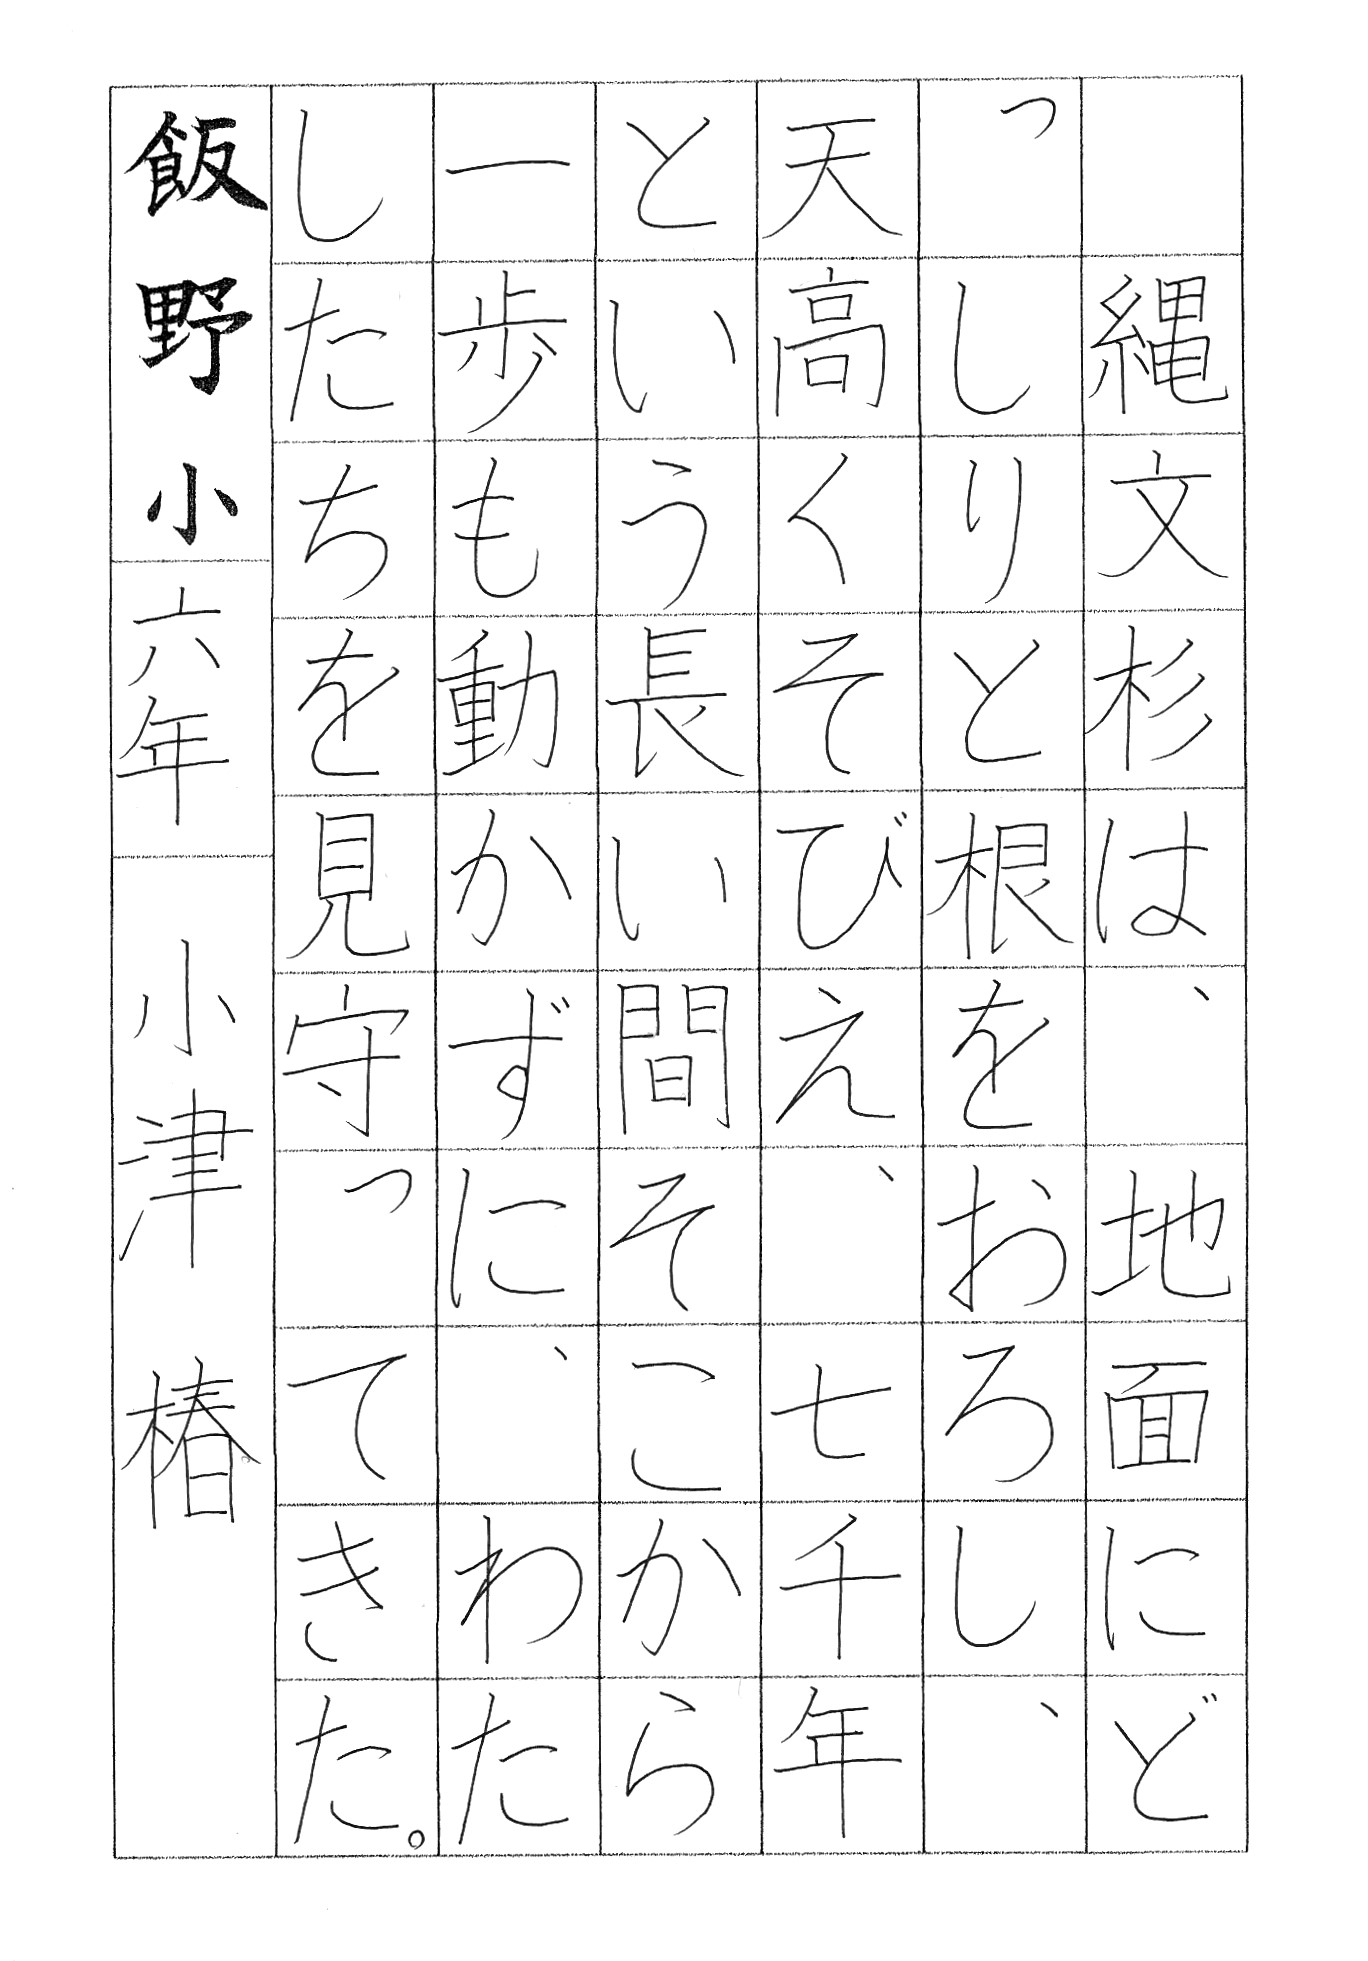 縄文杉は、地面にど
っしりと根をおろし、
天高くそびえ、七千年
という長い間そこから
一歩も動かずに、わた
したちを見守ってきた。
飯野小 六年 小津 椿